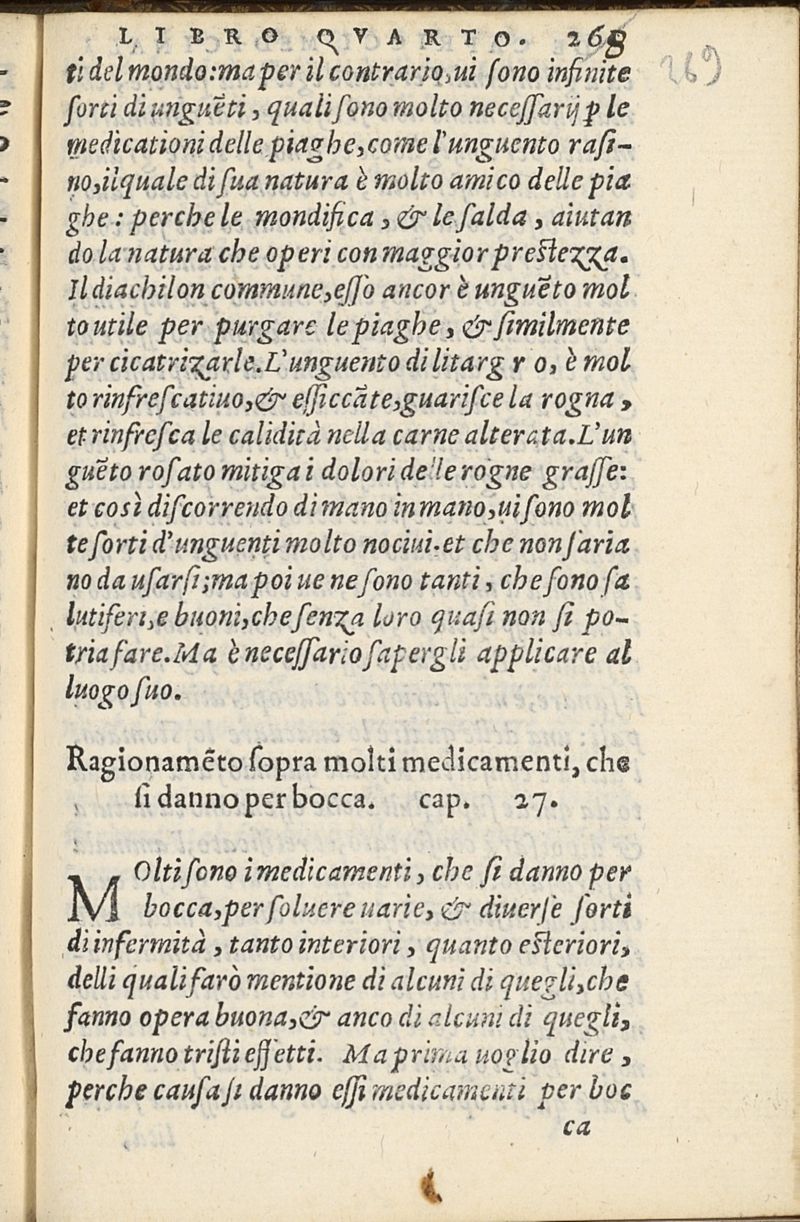 LIBRO QVARTO. 268
269
ti del mondo: ma per il contrario, ui sono infinite
sorti di unguẽti, quali sono molto necessarij ꝑ le
medicationi delle piaghe, come l'unguento rasi-
no, ilquale di sua natura è molto amico delle pia
ghe: perche le mondifica, & le salda, aiutan
do la natura che operi con maggior prestezza.
Il diachilon commune, esso ancor è unguẽto mol
to utile per purgare le piaghe, & similmente
per cicatrizarle. L'unguento di litarg r o, è mol
to rinfrescatiuo, & essiccãte, guarisce la rogna,
et rinfresca le calidità nella carne alterata. L'un
guẽto rosato mitiga i dolori delle rogne grasse:
et così discorrendo di mano in mano, ui sono mol
te sorti d'unguenti molto nociui. et che non saria
no da usarsi; ma poi ue ne sono tanti, che sono sa
lutiferi, e buoni, che senza loro quasi non si po-
tria fare. Ma è necessario sapergli applicare al
luogo suo.
Ragionamẽto sopra molti medicamenti, che
si danno per bocca. cap. 27.
MOlti sono i medicamenti, che si danno per
bocca, per soluere uarie, & diuerse sorti
di infermità, tanto interiori, quanto esteriori,
delli quali farò mentione di alcuni di quegli, che
fanno opera buona, & anco di alcuni di quegli,
che fanno tristi effetti. Ma prima uoglio dire,
perche causa si danno essi medicamenti per boc
ca